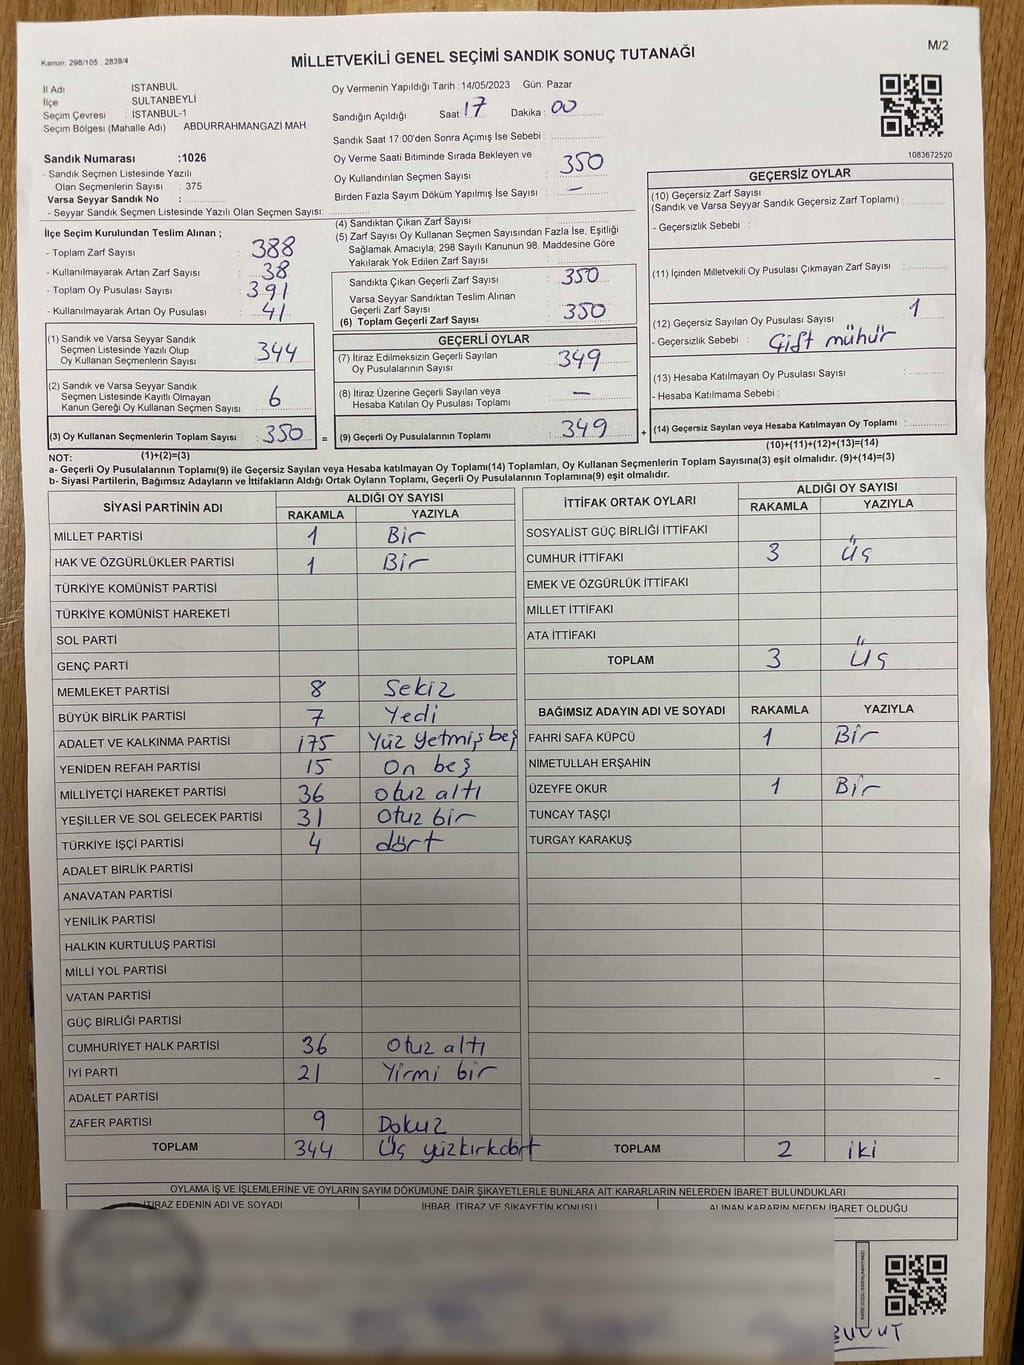 M/2
Kanun: 298/105 , 2839/4
MİLLETVEKİLİ GENEL SEÇİMİ SANDIK SONUÇ TUTANAĞI
İl Adı : İSTANBUL
İlçe : SULTANBEYLİ
Seçim Çevresi : İSTANBUL-1
Seçim Bölgesi (Mahalle Adı) : ABDURRAHMANGAZİ MAH.
Sandık Numarası :1026
- Sandık Seçmen Listesinde Yazılı
Olan Seçmenlerin Sayısı : 375
Varsa Seyyar Sandık No :
- Seyyar Sandık Seçmen Listesinde Yazılı Olan Seçmen Sayısı:
Oy Vermenin Yapıldığı Tarih :14/05/2023 Gün: Pazar
Sandığın Açıldığı Saat: 17 Dakika: 00
Sandık Saat 17:00'den Sonra Açımış İse Sebebi :
Oy Verme Saati Bitiminde Sırada Bekleyen ve
Oy Kullandırılan Seçmen Sayısı : 350
Birden Fazla Sayım Döküm Yapılmış İse Sayısı : —
1083672520
İlçe Seçim Kurulundan Teslim Alınan ;
- Toplam Zarf Sayısı : 388
- Kullanılmayarak Artan Zarf Sayısı : 38
- Toplam Oy Pusulası Sayısı : 391
- Kullanılmayarak Artan Oy Pusulası : 41
(1) Sandık ve Varsa Seyyar Sandık
Seçmen Listesinde Yazılı Olup
Oy Kullanan Seçmenlerin Sayısı : 344
(2) Sandık ve Varsa Seyyar Sandık
Seçmen Listesinde Kayıtlı Olmayan
Kanun Gereği Oy Kullanan Seçmen Sayısı : 6
(3) Oy Kullanan Seçmenlerin Toplam Sayısı : 350 =
(4) Sandıktan Çıkan Zarf Sayısı :
(5) Zarf Sayısı Oy Kullanan Seçmen Sayısından Fazla İse, Eşitliği
Sağlamak Amacıyla; 298 Sayılı Kanunun 98. Maddesine Göre
Yakılarak Yok Edilen Zarf Sayısı :
Sandıkta Çıkan Geçerli Zarf Sayısı : 350
Varsa Seyyar Sandıktan Teslim Alınan
Geçerli Zarf Sayısı
(6) Toplam Geçerli Zarf Sayısı : 350
GEÇERLİ OYLAR
(7) İtiraz Edilmeksizin Geçerli Sayılan
Oy Pusulalarının Sayısı : 349
(8) İtiraz Üzerine Geçerli Sayılan veya
Hesaba Katılan Oy Pusulası Toplamı : —
(9) Geçerli Oy Pusulalarının Toplamı : 349 +
GEÇERSİZ OYLAR
(10) Geçersiz Zarf Sayısı
(Sandık ve Varsa Seyyar Sandık Geçersiz Zarf Toplamı) :
- Geçersizlik Sebebi :
(11) İçinden Milletvekili Oy Pusulası Çıkmayan Zarf Sayısı :
(12) Geçersiz Sayılan Oy Pusulası Sayısı : 1
- Geçersizlik Sebebi : Çift mühür
(13) Hesaba Katılmayan Oy Pusulası Sayısı :
- Hesaba Katılmama Sebebi :
(14) Geçersiz Sayılan veya Hesaba Katılmayan Oy Toplamı :
NOT: (1)+(2)=(3) (10)+(11)+(12)+(13)=(14)
a- Geçerli Oy Pusulalarının Toplamı(9) ile Geçersiz Sayılan veya Hesaba katılmayan Oy Toplamı(14) Toplamları, Oy Kullanan Seçmenlerin Toplam Sayısına(3) eşit olmalıdır. (9)+(14)=(3)
b- Siyasi Partilerin, Bağımsız Adayların ve İttifakların Aldığı Ortak Oyların Toplamı, Geçerli Oy Pusulalarının Toplamına(9) eşit olmalıdır.
SİYASİ PARTİNİN ADI ALDIĞI OY SAYISI
RAKAMLA YAZIYLA
MİLLET PARTİSİ 1 Bir
HAK VE ÖZGÜRLÜKLER PARTİSİ 1 Bir
TÜRKİYE KOMÜNİST PARTİSİ
TÜRKİYE KOMÜNİST HAREKETİ
SOL PARTİ
GENÇ PARTİ
MEMLEKET PARTİSİ 8 Sekiz
BÜYÜK BİRLİK PARTİSİ 7 Yedi
ADALET VE KALKINMA PARTİSİ 175 Yüz yetmiş beş
YENİDEN REFAH PARTİSİ 15 On beş
MİLLİYETÇİ HAREKET PARTİSİ 36 otuz altı
YEŞİLLER VE SOL GELECEK PARTİSİ 31 Otuz bir
TÜRKİYE İŞÇİ PARTİSİ 4 dört
ADALET BİRLİK PARTİSİ
ANAVATAN PARTİSİ
YENİLİK PARTİSİ
HALKIN KURTULUŞ PARTİSİ
MİLLİ YOL PARTİSİ
VATAN PARTİSİ
GÜÇ BİRLİĞİ PARTİSİ
CUMHURİYET HALK PARTİSİ 36 Otuz altı
İYİ PARTİ 21 Yirmi bir
ADALET PARTİSİ
ZAFER PARTİSİ 9 Dokuz
TOPLAM 344 Üç yüzkırkdört
İTTİFAK ORTAK OYLARI ALDIĞI OY SAYISI
RAKAMLA YAZIYLA
SOSYALİST GÜÇ BİRLİĞİ İTTİFAKI
CUMHUR İTTİFAKI 3 Üç
EMEK VE ÖZGÜRLÜK İTTİFAKI
MİLLET İTTİFAKI
ATA İTTİFAKI
TOPLAM 3 Üç
BAĞIMSIZ ADAYIN ADI VE SOYADI RAKAMLA YAZIYLA
FAHRİ SAFA KÜPCÜ 1 Bir
NİMETULLAH ERŞAHİN
ÜZEYFE OKUR 1 Bir
TUNCAY TAŞÇI
TURGAY KARAKUŞ
TOPLAM 2 iki
OYLAMA İŞ VE İŞLEMLERİNE VE OYLARIN SAYIM DÖKÜMÜNE DAİR ŞİKAYETLERLE BUNLARA AİT KARARLARIN NELERDEN İBARET BULUNDUKLARI
İTİRAZ EDENİN ADI VE SOYADI İHBAR, İTİRAZ VE ŞİKAYETİN KONUSU ALINAN KARARIN NEDEN İBARET OLDUĞU